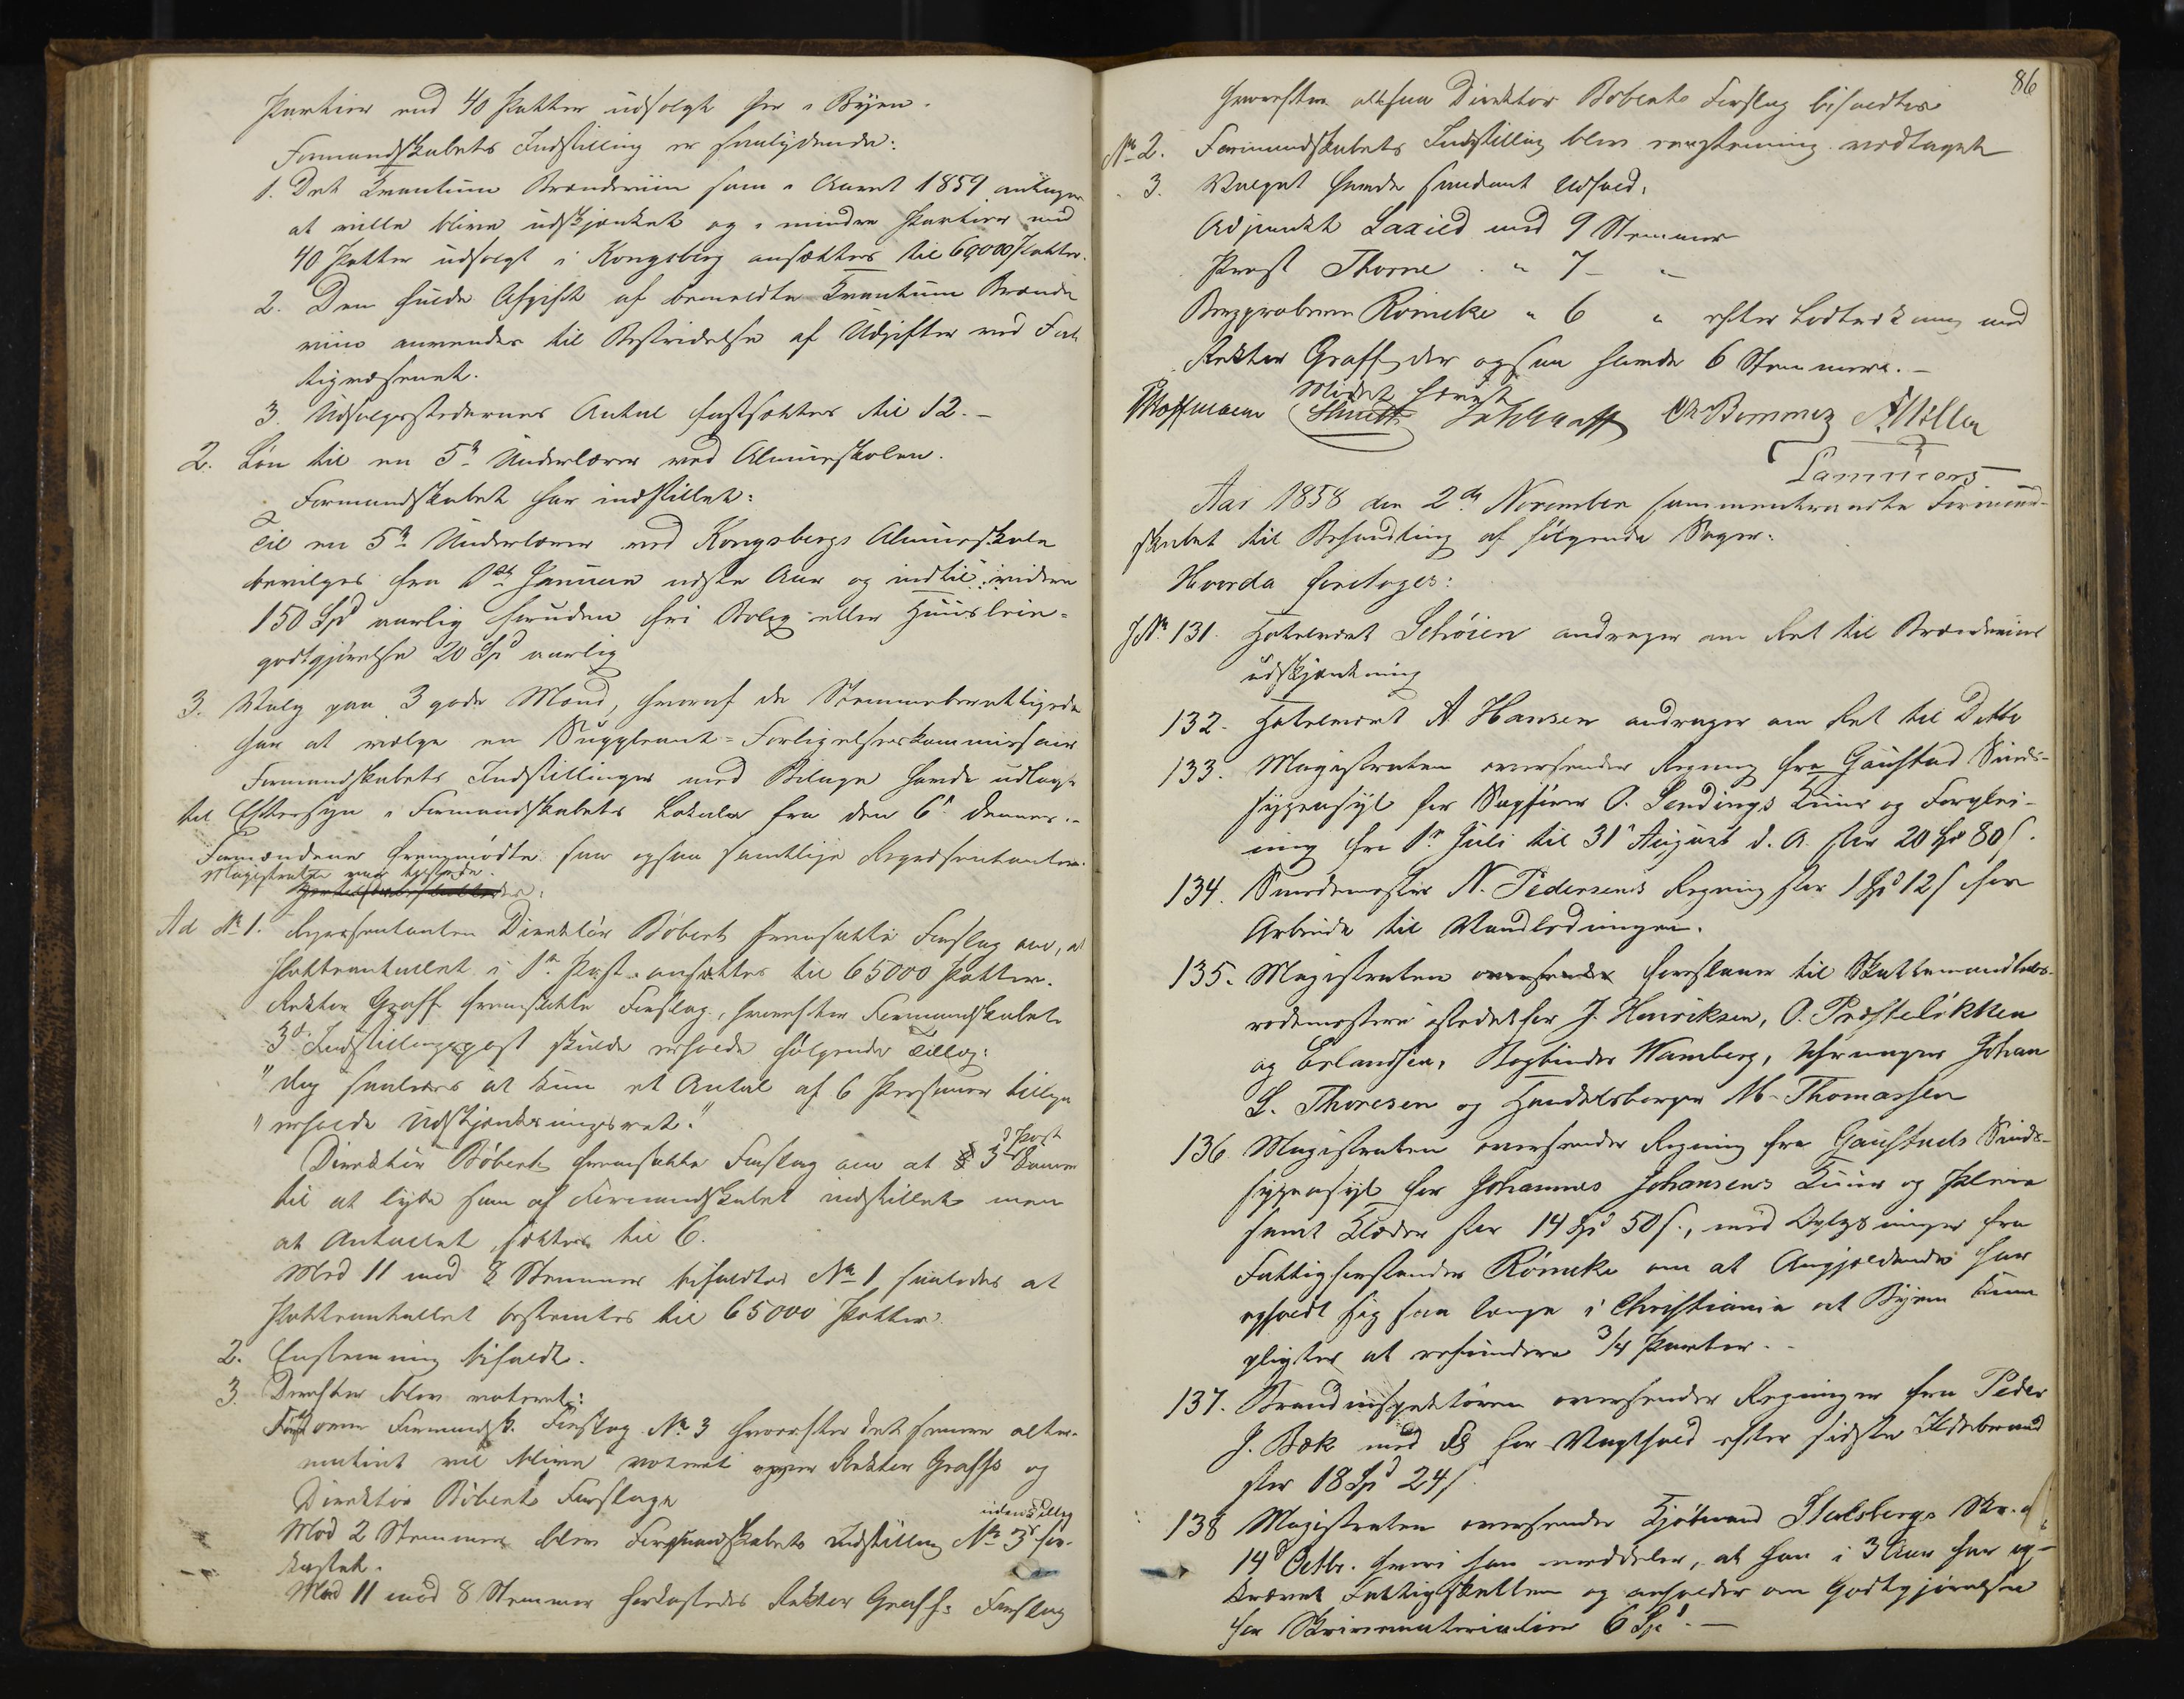 Partier end 40 Potter udsolgt her i Byen.
Formandskabets Indstilling er saalydende:
1. Det Qvantum Brændeviin som i Aaret 1859 antages
at ville blive udskjænket og i mindre Partier end
40 Potter udsolgt i Kongsberg ansættes til 60,000 Potter.
2. Den hele Afgift af bemeldte Qvantum Brænde
viin anvendes til Bestridelse af Udgifter ved Fat
tigvæsenet.
3. Udsalgsstedernes Antal fastsættes til 12.-
2. Løn til en 5te Underlærer ved Almueskolen.
Formandskabet har indstillet:
Til en 5te Underlærer ved Kongsbergs Almueskole
bevilges fra 1ste Januar næste Aar og indtil videre
150 Spd aarlig foruden fri Bolig eller Huusleie=
godtgjørelse 20 Spd aarlig
3. Valg paa 3 gode Mænd, hvoraf de Stemmeberettigede
har at vælge en Suppleant=Forligelseskommissair
Formandskabets Indstillinger med Bilage havde udlagt
til Eftersyn i Formandskabets Lokale fra den 6te dennes.-
Formændene fremmødte saa ogsaa samtlige Repræsentanter.
Magistraten var tilstede.
Ad No 1. Repræsentanten Direktør Bøbert fremsatte Forslag om, at
Potteantallet i 1ste Post ansættes til 65000 Potter.
Rektor Graff fremsatte Forslag, hvorefter Formandskabets
3die Indstillingspost skulde erholde følgende Tillæg:
"dog saaledes at kun et Antal af 6 Personer tillige
"erholde Udskjænkningsret."
Direktør Bøbert fremsatte Forslag om at 3die Post kommer
til at lyde som af Formandskabet indstillet men
at Antallet sættes til 6.
Med 11 mod 8 Stemmer bifaldtes No 1 saaledes at
Potteantallet bestemtes til 65000 Potter.
2. Enstemmig bifaldt.
3. Derefter blev voteret:
Først over Formandsk. Forslag No 3 hvorefter det senere alter-
nativt vil blive voteret over Rektor Graffs og
Direktør Bøberts Forslage
uden Tillæg
Mod 2 Stemmer blev Formandskabets Indstilling No 3 for-
kastet.
Med 11 mod 8 Stemmer forkastedes Rektor Graffs Forslag
86
hvorefter altsaa Direktør Bøberts Forslag bifaldtes
No 2. Formandskabets Indstilling blev eenstemmig vedtaget
3. Valget havde saadant Udfald:
Adjunkt Laxild med 9 Stemmer
Prost Thorne " 7 "
Bergprøberen Rømcke " 6 " efter Lodtrækning med
Rektor Graff der ogsaa havde 6 Stemmer.-
Mødet hævet
Hoffmann Schmidt Joh Graff Ch Bommez A Møller
Lammers
Aar 1858 den 2den November sammentraadte Formand-
skabet til Behandling af følgende Sager:
Hvorda foretoges:
JNo 131. Hotelvært Schøien andrager om Ret til Brændeviins
udskjænkning
132. Hotelvært A Hansen andrager om Ret til Ditto
133. Magistraten oversender Regning fra Gaustad Sinds-
sygeasyl for Sagfører O. Sendings Kuur og Forplei-
ning fra 1ste Juli til 31te August d. A. stor 20 Spd 80 s.
134. Smedemester N. Pedersens Regning stor 1 Spd 12 s for
Arbeide til Vandledningen.
135. Magistraten oversender foreslaaer til Skattemandtals-
rodemestere istedetfor J. Henriksen, O. Præsteløkken
og Erlandsen, Bogbinder Wamberg, Uhrmager Johan
L. Thoresen og Handelsborger M. Thomassen
136 Magistraten oversender Regning fra Gaustads Sinds-
sygeasyl for Johannes Johansens Kuur og Pleie
samt Klæder stor 14 Spd 50 s., med Oplysninger fra
Fattigforstander Rømcke om at Angjældende har
opholdt sig saa længe i Christiania at Byen kun
pligter at refundere 3/4 Parter.-
137. Brandinspektøren oversender Regninger fra Peder
J. Bæk med Fl for Vagthold efter sidste Ildebrand
stor 18 Spd 24 s
138 Magistraten oversender Kjøbmand Stalsbergs Skr. af
14de Octbr. hvori han meddeler, at han i 3 Aar har op-
krævet Fattigskatten og anholder om Godtgjørelse
for Skrivematerialier 6 Spd.-